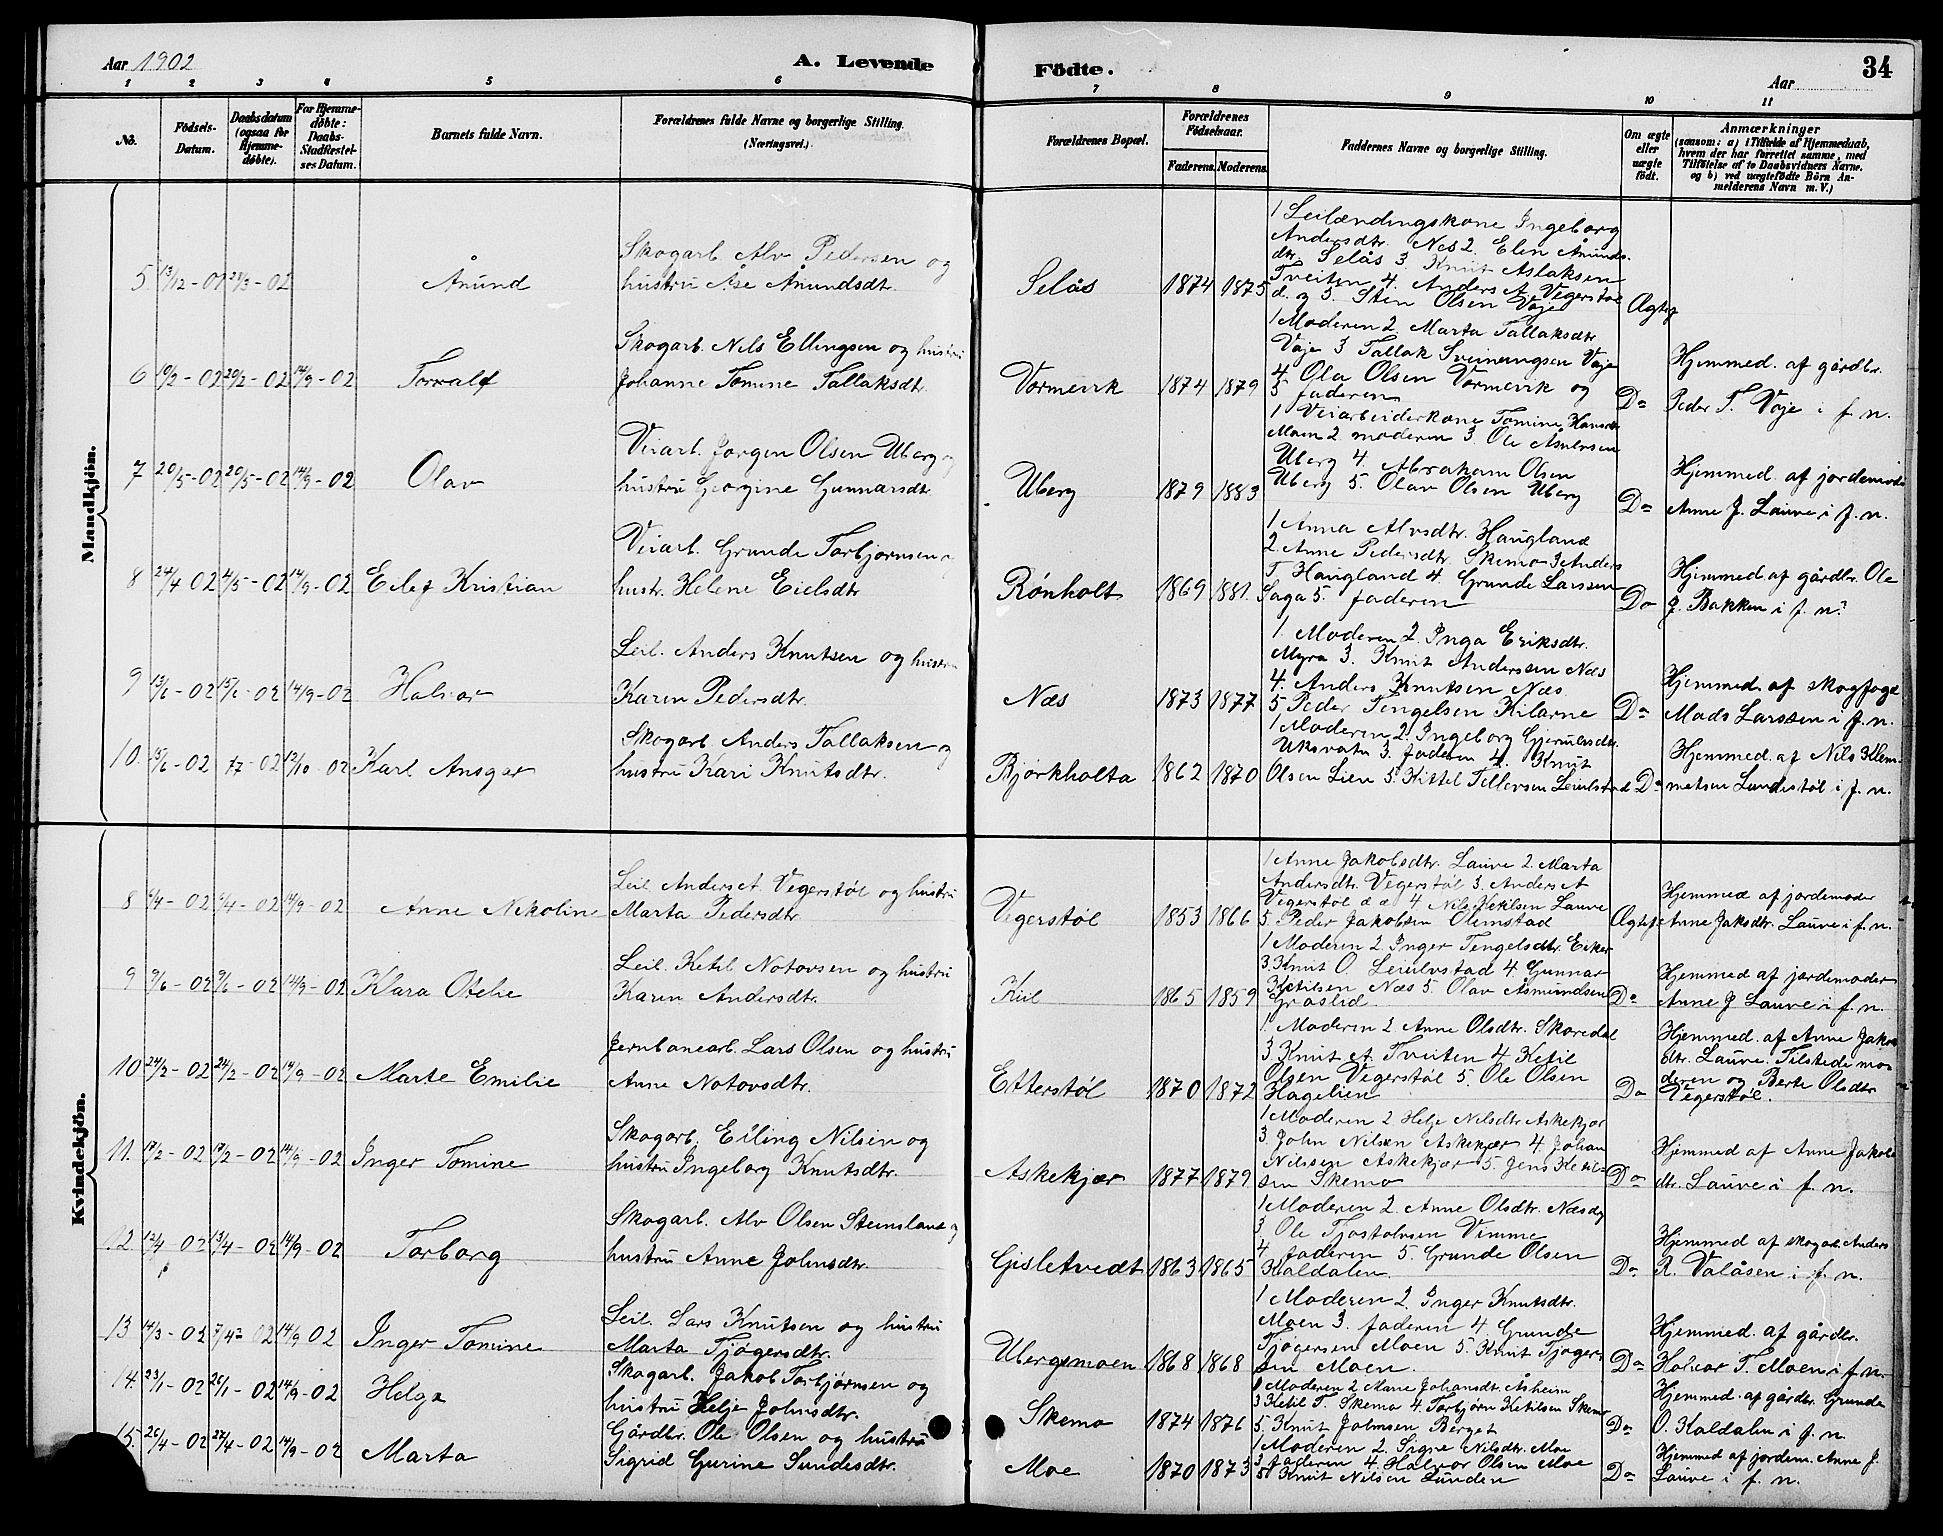 Aar 1902
A. Levende
Födte.
Aar
34
1 2 3 4 5 6 7 8 9 10 11
No.
Födsels-
Datum.
Daabsdatum
(ogsaa for
Hjemme-
døbte).
For Hjemme-
døbte:
Daabs-
Stadfæstel-
ses Datum.
Barnets fulde Navn.
Forældrenes fulde Navne og borgerlige Stilling.
(Næringsvei.)
Forældrenes Bopæl.
Forældrenes
Fødselsaar.
Faderens. Moderens.
Faddernes Navne og borgerlige Stilling.
Om ægte
eller
uægte
født.
Anmærkninger
(saasom: a) i Tilfælde af Hjemmedaab,
hvem der har forrettet samme, med
Tilføielse af to Daabsvidners Navne.
og b) ved uægtefødte Börn An-
melderens Navn m. V.)
Mandkjön.
5 13/12-01 23/3-02 Ånund
Skogarb Alv Pedersen og
hustru Åse Ånundsdt.
Selås 1874 1875
1 Leilændingskone Ingeborg
Andersdtr. Nes 2. Elen Ånunds-
dtr. Selås 3. Knut Aslaksen
Tveiten 4. Anders A. Vegerstøl
d. y 5. Sten Olsen Voje
Ægtef
6 19/2-02 20/2-02 14/9-02 Torvalf
Skogarb. Nils Ellingsen og hustru
Johanne Tomine Tallaksdt.
Vormevik 1874 1879
1 Moderen 2. Marta Tallaksdtr.
Voje 3 Tallak Sveinungsen Voje
4. Ola Olsen Vormevik og
5 faderen
Do
Hjemmed. af gårdbr.
Peder T. Voje i f. n.
7 20/5-02 20/5-02 14/9-02 Olav
Veiarb. Jorgen Olsen Uberg og
hustru Georgine Gunnarsdt.
Uberg 1879 1883
1 Veiarbeiderkone Tomine Hansdt.
Moen 2 moderen 3. Ole
Uberg 4. Abraham Olsen
Uberg 5. Olav Olsen Uberg
Do
Hjemmed. af jordemoder
Anne J. Lauve i f. n.
8 24/4 02 4/5-02 14/9-02 Eilef Kristian
Veiarb. Grunde Torbjørnsen og
hustr. Helene Eielsdtr
Rönholt 1869 1881.
1 Anna Alvsdtr. Haugland
2. Anne Pedersdtr. Skemo 3. Anders
T. Haugland 4. Grunde Larssen
Saga 5. faderen
Do
Hjemmed. af gårdbr. Ole
J. Bakken i f. n.
9 13/6-02 15/6-02 14/9-02 Halvor
Leil. Anders Knutsen og hustru
Karen Pedersdtr.
Næs 1873 1877
1. Moderen 2. Inga Eriksdtr.
Myra 3. Knut Anderssen Næs
4. Anders Knutsen Næs.
5 Peder Tengelsen Kilarne
Do
Hjemmed. af skogfoged
Mads Larssen i f. n.
10. 15/6-02 /7-02 12/10-02 Karl Ansgar
Skogarb. Anders Tallaksen og
hustru Kari Knutsdtr.
Bjørkholta 1862 1870
1 Moderen 2. Ingeborg
Uksvatn 3. faderen 4. Knut
Olsen Lien 5. Kittel Tellevsen
Do
Hjemmed. af Nils Klem-
metsen Lundestøl i f. n.
Kvindekjön.
8 /4-02 /4-02 14/9-02 Anne Nikoline
Leil. Anders A. Vegerstøl og hustru
Marta Pedersdtr.
Vegerstøl 1853 1866
1 Anne Jakobsdtr. Lauve 2. Marta
Andersdtr. Vegerstøl 3. Anders A
Vegerstøl d. e. 4 Nils Ketilsen Lauve
5. Peder Jakobsen Olimstad
Ægtef
Hjemmed af jordemoder
Anne Jaksdtr. Lauve i f. n.
9 9/6-02 9/6-02 14/9-02 Klara Otelie
Leil. Ketil Notovsen og hustru
Karen Andersdtr.
Kiil 1865 1859
1 Moderen 2 Inger Tengelsdtr. Eiker
3. Knut O. 4 Gunnar
Ketilsen Næs 5. Olav Asmundsen
Graslid.
Do
Hjemmed af jordemoder
Anne J Lauve i f. n.
10 24/2-02 24/2-02 14/9-02 Marte Emilie
Jernbanearb. Lars Olsen og hustru
Anne Notovsdtr.
Etterstøl 1870 1872
1. Moderen 2 Anne Olsdtr. Skaredal
3 Knut A. Tveiten 4 Ketil
Olsen Vegerstøl 5. Ole Olsen
Hagelien
Do
Hjemmed. af Anne Jakobs
dtr. Lauve. Tilstede mo-
deren og Berte Olsdtr
Vegerstøl.
11. 17/2-02 17/2-02 14/9-02 Inger Tomine
Skogarb. Elling Nilsen og
hustru Ingeborg Knutsdtr.
Askekjær 1877 1879
1 Moderen 2 Helje Nilsdtr. Askekjær
3. John Nilsen Askekjær 4 Johan
Nilssen Askekjær 5. Jens Ketil-
sen Skemo
Do
Hjemmed af Anne Jakobs
dtr. Lauve i f. n.
12 12/4-02 13/4-02 14/9-02 Torborg
Skogarb. Alv Olsen Stensland og
hustru Anne Johnsdtr.
Gisletvedt 1863 1865
1 Moderen 2. Anne Olsdtr. Næsdy
3 Ole Tjostolvsen Vimme
4. faderen 5. Grunde Olsen
Kaldalen.
Do
Hjemmed af skogarb. Anders
R. Valåsen i f. n.
13 14/3-02 7/4-02 14/9 02 Inger Tomine
Leil. Lars Knutsen og hustru
Marta Tjøgersdtr.
Ubergsmoen 1868 1868
1 Moderen 2. Inger Knutsdtr.
Moen 3. faderen 4 Grunde
Tjøgersen Moen 5. Knut Tjøger-
sen Moen.
Do
Hjemmed. af gårdbr.
Halvor T. Moen i f. n.
14. 23/1-02 26/1-02 14/9-02 Helga
Skogarb. Jakob Torbjørnsen og
hustru Helje Johnsdtr.
Skemo 1874 1876
1 Moderen 2 Marie Johansdt. Åsheim
3 Ketil T. Skemo 4. Torbjørn Ketilsen Skemo
5. Knut Johnsen Berget
Do
Hjemmed. af gårdbr. Grunde
O. Kaldalen i f. n.
15. 26/4-02 27/4-02 14/9-02 Marta
Gårdbr. Ole Olsen og hustru
Sigrid Gurine Sundesdtr.
Moe 1870 1873
1 Moderen 2. Signe Nilsdtr. Moe
3 faderen 4. Halvor Olsen Moe
5 Knut Nilsen Lunden
Do
Hjemmed af jordem. Anne J.
Lauve i f. n.